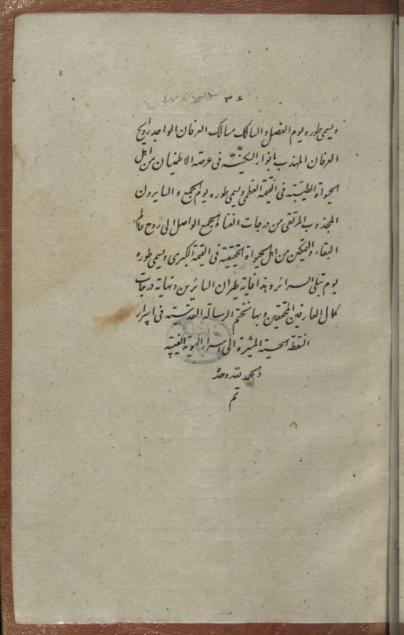 ٣٤
و یسمی طوره یوم الفصل و السالک مسالک العرفان الواجد روح
العرفان المهذب بانوار السکینة فی عرصة الاطمینان من اهل
الحیوة الطیبة فی القیمة العظمی و یسمی طوره یوم الجمع و السایرون
المجذوب المرتقی من درجات الفناء و الجمع الواصل الی روح عالم
البقاء و التمکین من اهل الحیوة الحقیقیة فی القیمة الکبری و یسمی طوره
یوم تبلی السرائر و هذا غایة طیران السائرین و نهایة درجات
کمال العارفین المحققین و بها نختم الرسالة القدسیة فی اسرار
النقطة الحسیة المشیرة الی اسرار الهویة الغیبیة
و الحمد لله وحده
تم